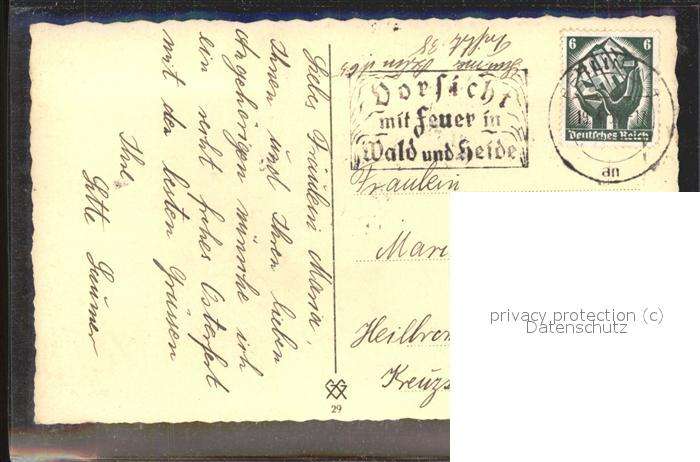 Liebes Fräulein Maria,
Ihnen und Ihren lieben
Angehörigen wünsche ich
ein recht frohes Osterfest
mit den besten Grüssen
Ihre
Vorsicht
mit Feuer in
Wald und Heide
6 6
Deutsches Reich
an
Fräulein
Mari
Heilbron
Kreuzs
29
privacy protection (c)
Datenschutz